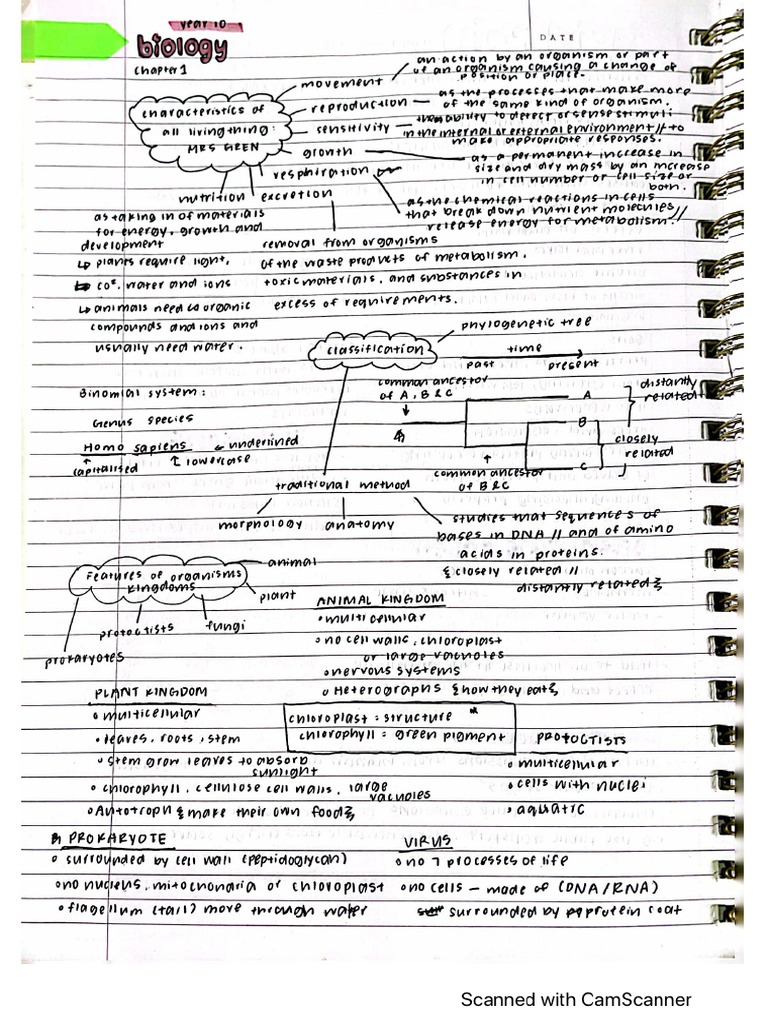 year 10
biology
DATE
Chapter 1
characteristics of
all living thing:
MRS GREN
movement
an action by an organism or part
of an organism causing a change of
position or place.
reproduction
as the processes that make more
of the same kind of organism.
sensitivity
the ability to detect or sense stimuli
in the internal or external environment // to
make appropriate responses.
growth
as a permanent increase in
size and dry mass by an increase
in cell number or cell size or
both.
respiration
as the chemical reactions in cells
that break down nutrient molecules //
release energy for metabolism.
nutrition
as taking in of materials
for energy, growth and
development
↳ plants require light,
↳ co², water and ions
↳ animals need organic
compounds and ions and
usually need water.
excretion
removal from organisms
of the waste products of metabolism.
toxic materials, and substances in
excess of requirements.
classification
phylogenetic tree
time
past present
common ancestor
of A, B & C
A
B
C
distantly
related
closely
related
common ancestor
of B & C
Binomial system:
Genus species
Homo sapiens ← underlined
↑ capitalised ↑ lowercase
traditional method
morphology anatomy
studies that sequences of
bases in DNA // and of amino
acids in proteins.
{ closely related //
distantly related }
Features of organisms
kingdoms
animal
plant
fungi
protoctists
prokaryotes
ANIMAL KINGDOM
• multicellular
• no cell walls, chloroplast
or large vacuoles
• nervous systems
• Heterographs { how they eat }
PLANT KINGDOM
• multicellular
• leaves, roots, stem
• stem grow leaves to absorb
sunlight
• chlorophyll, cellulose cell walls, large
vacuoles
• Autotroph { make their own food }
chloroplast = structure *
chlorophyll = green pigment
PROTOCTISTS
• multicellular
• cells with nuclei
• aquatic
PROKARYOTE
• surrounded by cell wall (peptidoglycan)
• no nucleus, mitochondria or chloroplast
• flagellum (tail) move through water
VIRUS
• no 7 processes of life
• no cells – made of (DNA/RNA)
surrounded by protein coat
Scanned with CamScanner